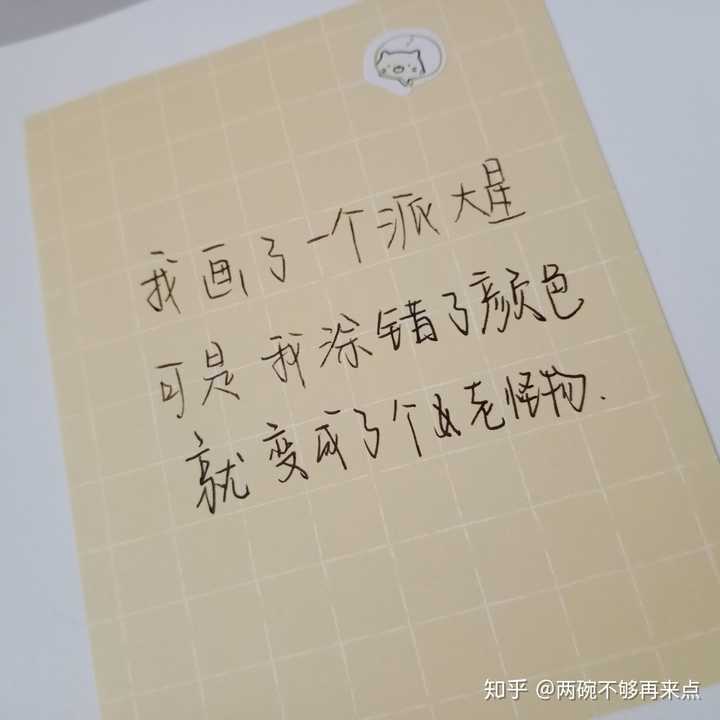 我画了一个派大星
可是我涂错了颜色
就变成了个丑老怪物.
知乎 @两碗不够再来点